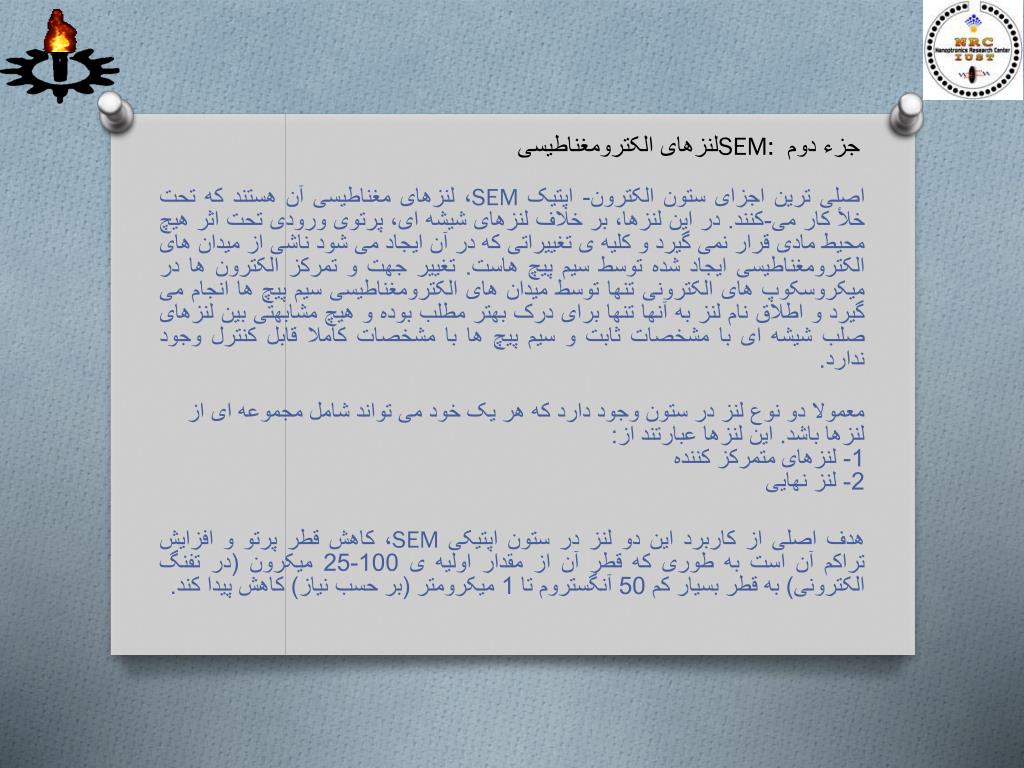 NRC
Nanoptronics Research Center
IUST
جزء دوم :SEMلنزهای الکترومغناطیسی
اصلی ترین اجزای ستون الکترون- اپتیک SEM، لنزهای مغناطیسی آن هستند که تحت
خلأ کار می-کنند. در این لنزها، بر خلاف لنزهای شیشه ای، پرتوی ورودی تحت اثر هیچ
محیط مادی قرار نمی گیرد و کلیه ی تغییراتی که در آن ایجاد می شود ناشی از میدان های
الکترومغناطیسی ایجاد شده توسط سیم پیچ هاست. تغییر جهت و تمرکز الکترون ها در
میکروسکوپ های الکترونی تنها توسط میدان های الکترومغناطیسی سیم پیچ ها انجام می
گیرد و اطلاق نام لنز به آنها تنها برای درک بهتر مطلب بوده و هیچ مشابهتی بین لنزهای
صلب شیشه ای با مشخصات ثابت و سیم پیچ ها با مشخصات کاملا قابل کنترل وجود
ندارد.
معمولا دو نوع لنز در ستون وجود دارد که هر یک خود می تواند شامل مجموعه ای از
لنزها باشد. این لنزها عبارتند از:
1- لنزهای متمرکز کننده
2- لنز نهایی
هدف اصلی از کاربرد این دو لنز در ستون اپتیکی SEM، کاهش قطر پرتو و افزایش
تراکم آن است به طوری که قطر آن از مقدار اولیه ی 100-25 میکرون (در تفنگ
الکترونی) به قطر بسیار کم 50 آنگستروم تا 1 میکرومتر (بر حسب نیاز) کاهش پیدا کند.